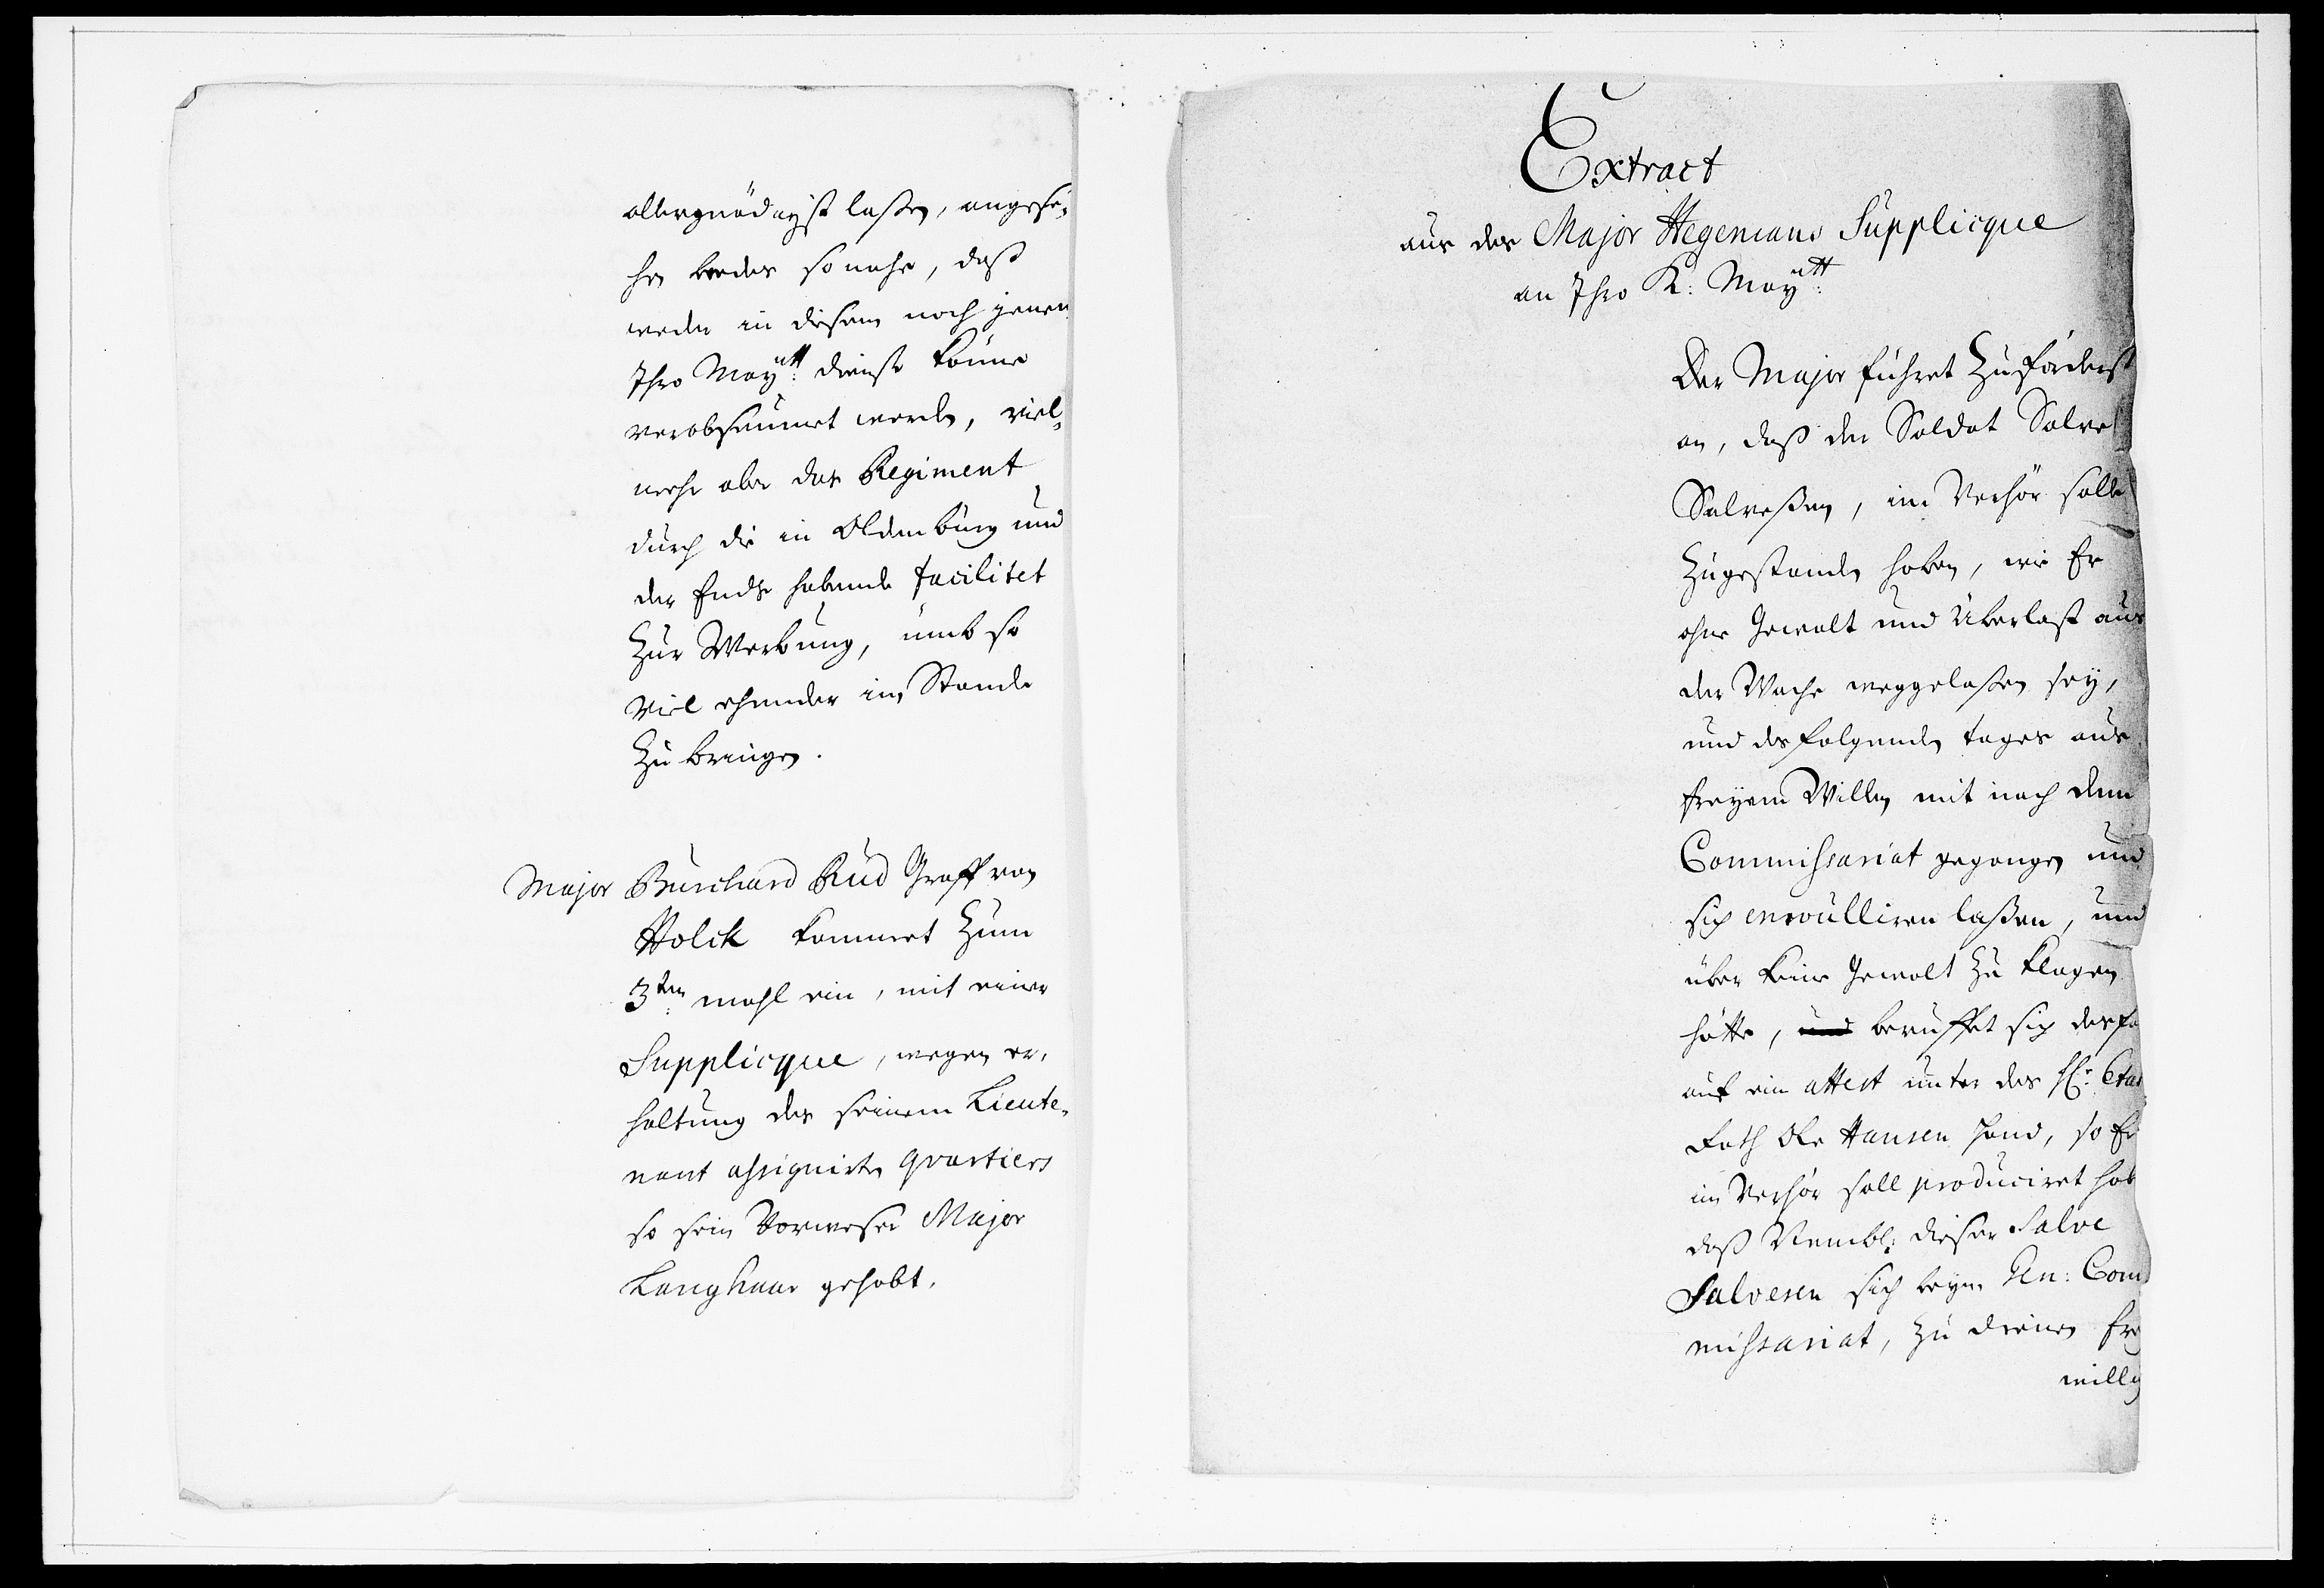 allergnädigst laßen, angese¬
hen beedes so nahe, daß
weder in diesem noch jenen
Ihro Mayᵗᵗ: dienst könne
verabseumet werden, viel¬
mehr aber das Regiment
durch die in Oldenburg und
der Ends habende facilitet
Zur Werbung, umb so
viel ehender im Stande
Zu bringen.
Major Burchard Rud Graff von
Holck kommet Zum
3ten: mahl ein, mit einer
Supplicque, wegen er¬
haltung des seinem Lieute¬
nant assignirten quartiers
so sein Vorweser Major
Langhaar gehabt.
Extract
aus des Major Hegemans Supplicque
an Ihro K: Mayᵗᵗ:
Der Major führet Zuforderst
an, daß der Soldat Salve
Salveßen, im Verhör solle
Zugestanden haben, wie Er
ohne Gewalt und Überlast aus
der Wache weggelaßen sey,
und des folgenden tages aus
freyem Willen mit nach dem
Commissariat gegangen und
sich enroulliren laßen, und
über keine Gewalt Zu klagen
hätte, und beruffet sich desfa
auf ein attest unter des HEr: Etat
Rath Ole Hansen Hand, so Er
im Verhör soll produciret hab
daß Nembl: dieser Salve
Salvesen sich beym Gn: Com
missariat, Zu dienen frey
willig